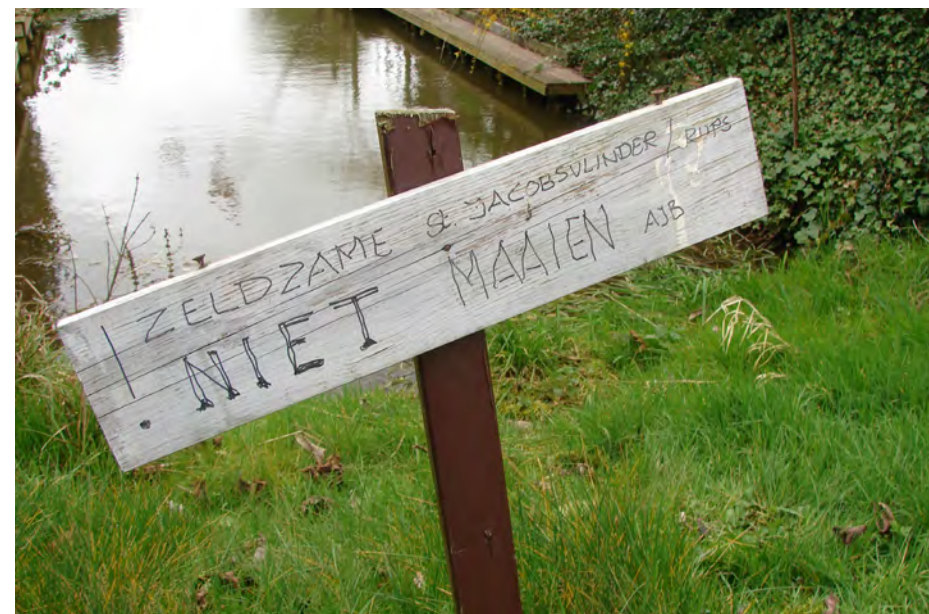 ! ZELDZAME St. JACOBSVLINDER / RUPS
NIET MAAIEN AJB